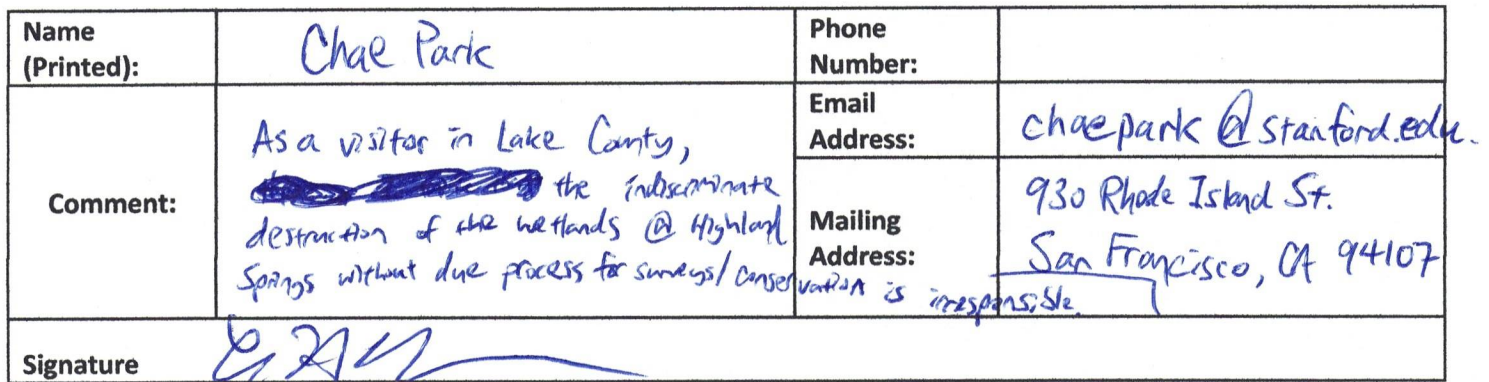 Name
(Printed):
Chae Park
Phone
Number:
Comment:
As a visitor in Lake County,
the indiscriminate
destruction of the wetlands @ Highland
Springs without due process for surveys/conservation is irresponsible.
Email
Address:
chaepark@stanford.edu.
Mailing
Address:
930 Rhode Island St.
San Francisco, CA 94107
Signature